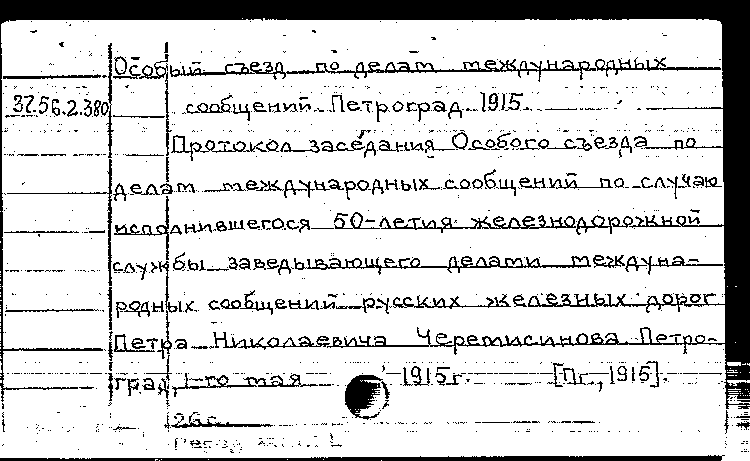 Особый съезд по делам международных
37.56.2.380 сообщений. Петроград. 1915.
Протокол заседания Особого съезда по
делам международных сообщений по случаю
исполнившегося 50-летия железнодорожной
службы заведывающего делами междуна-
родных сообщений русских железных дорог
Петра Николаевича Черемисинова. Петро-
град, 1-го мая 1915г. [Пг., 1915].
26с.